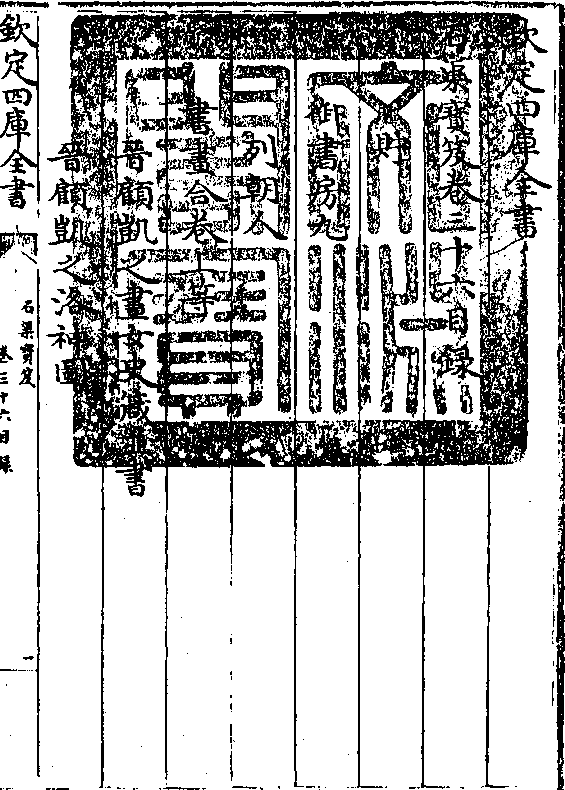 欽定四庫全書
石渠寳笈卷三十六目録
貯
御書房九
列朝人
書畫合卷上等
晉顧凱之畫女史箴並書
晉顧凱之洛神圖
欽定四庫全書
石渠寳笈
卷三十六目録
一